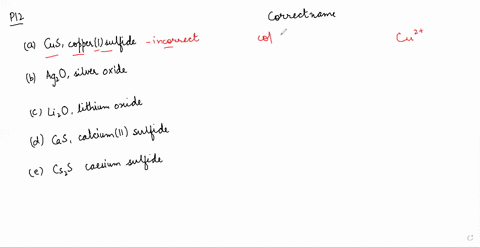 P12
Correct name
(a) CuS, copper(I) sulfide - incorrect col Cu²⁺
(b) Ag₂O, silver oxide
(c) Li₂O, lithium oxide
(d) CaS, calcium(II) sulfide
(e) Cs₂S caesium sulfide